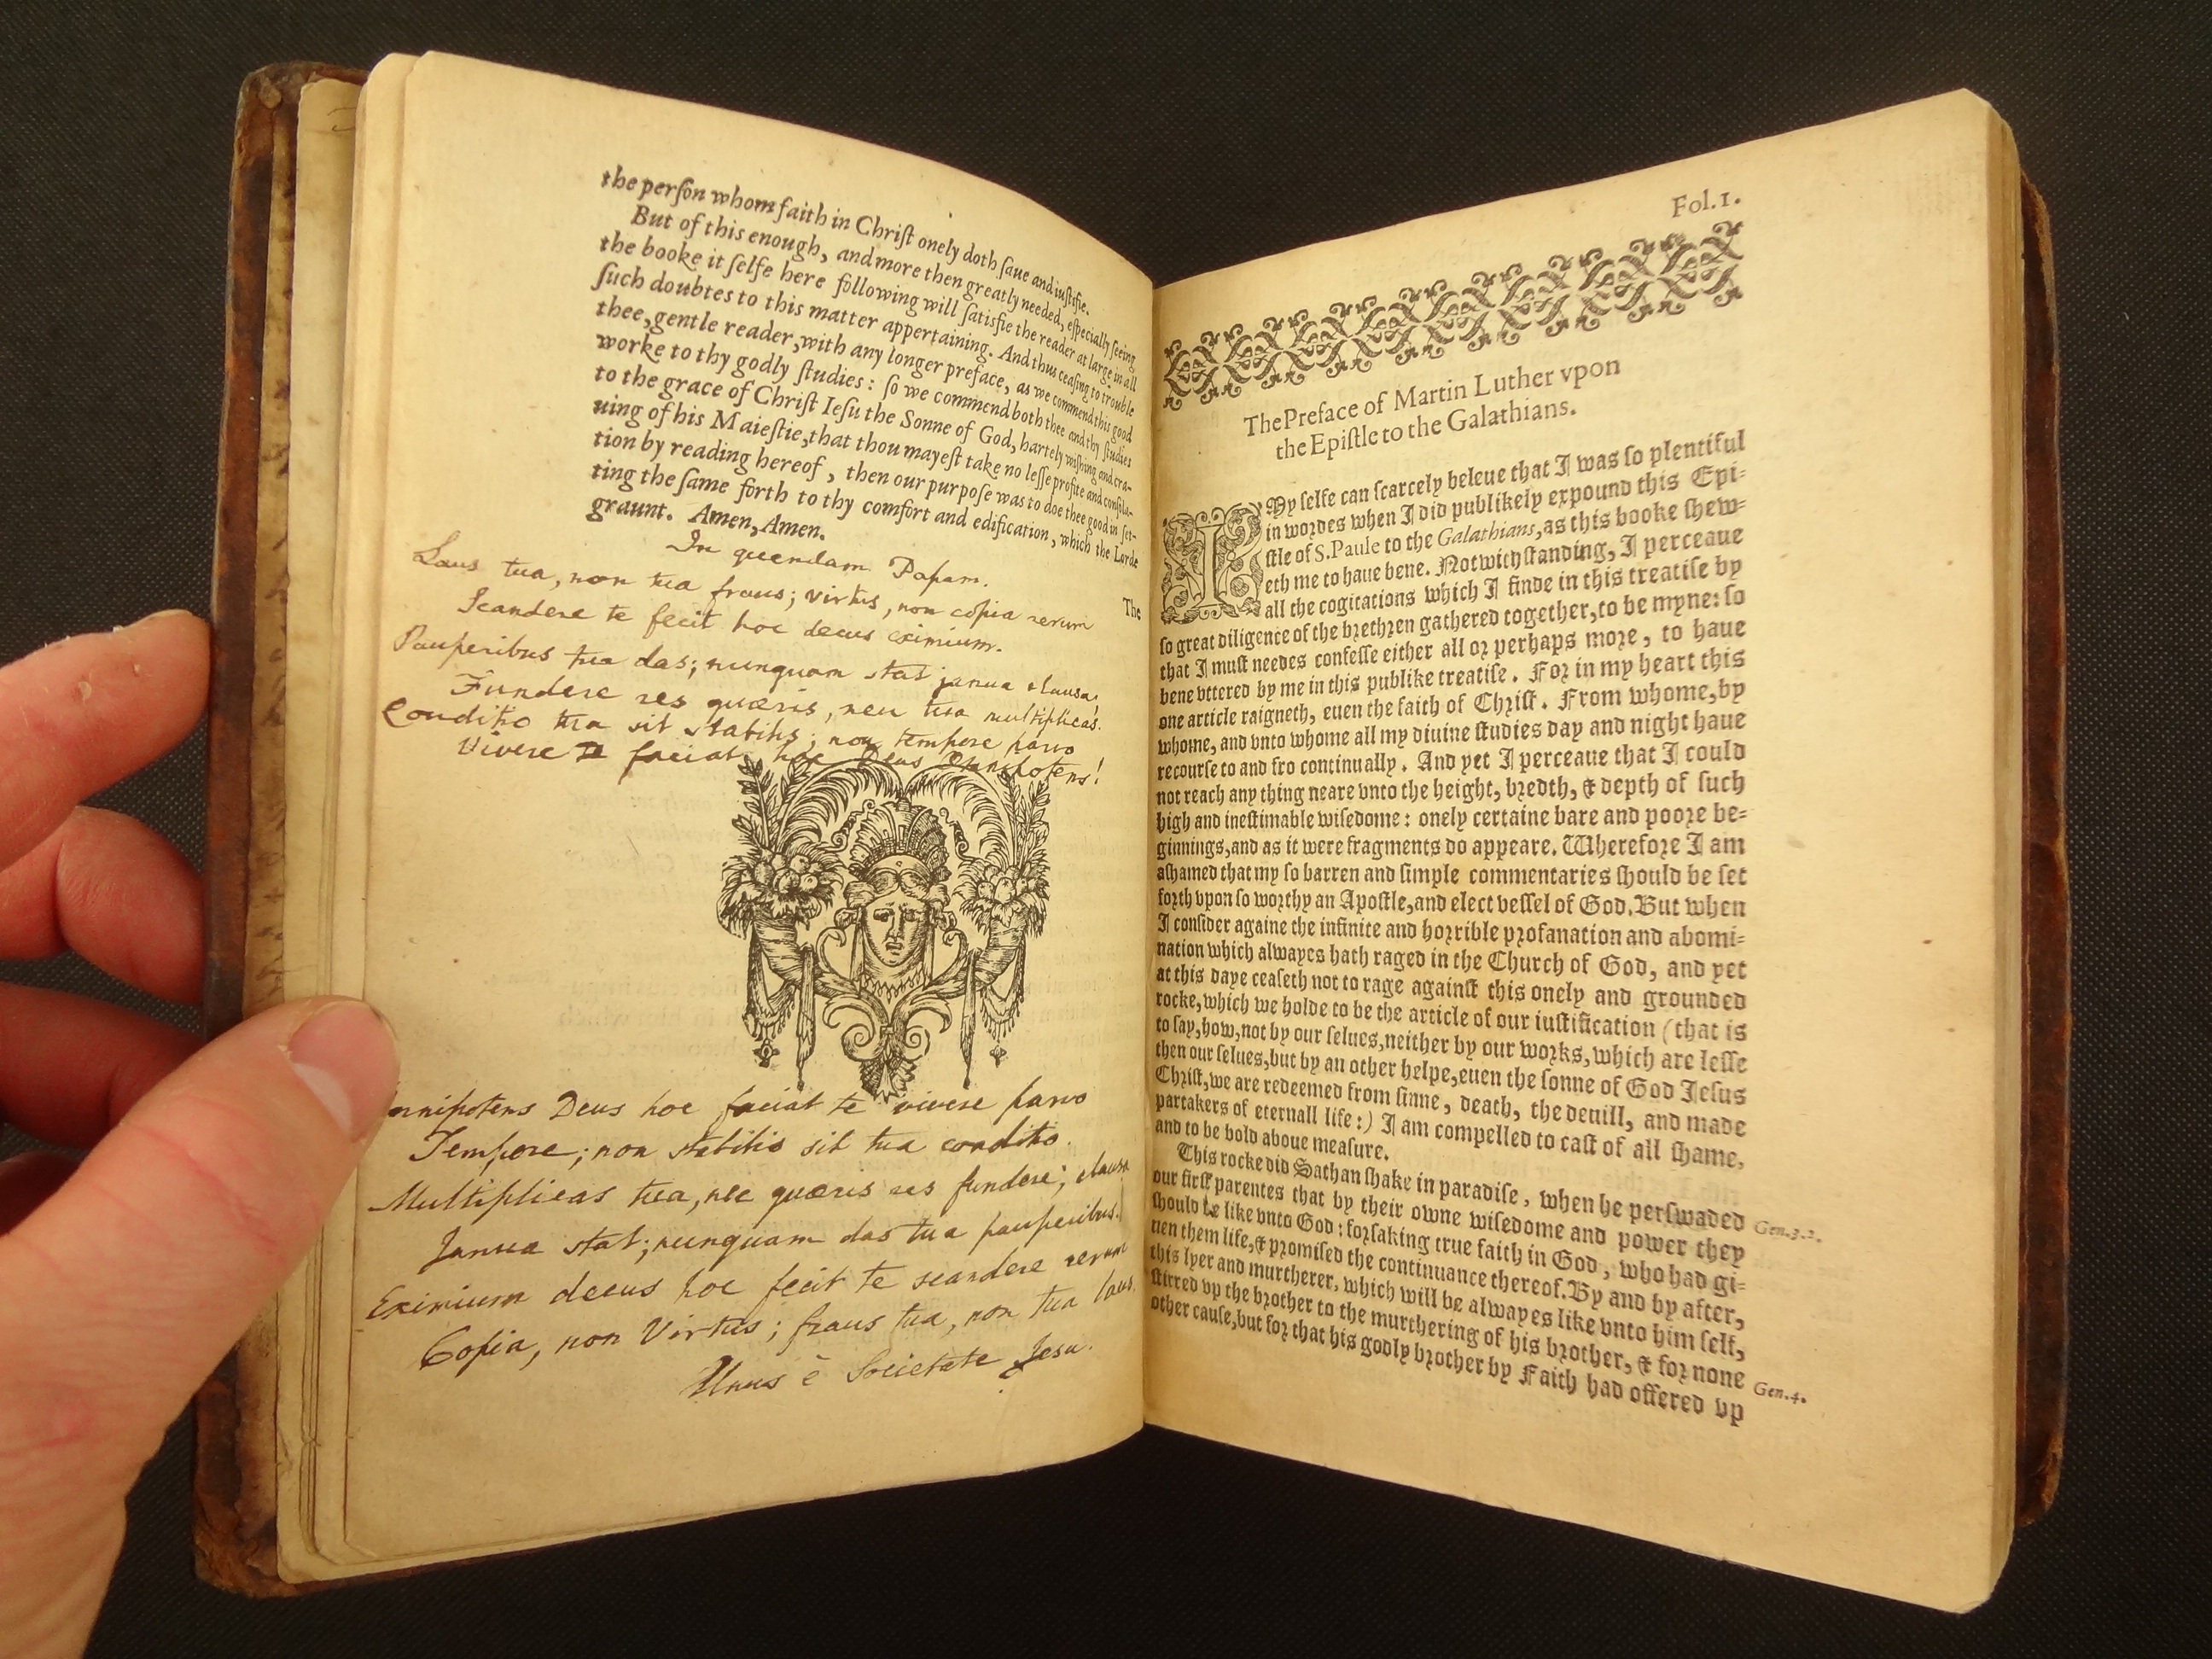 the perſon whom faith in Chriſt onely doth ſaue and iuſtifie.
But of this enough, and more then greatly needed, eſpecially ſeeing
the booke it ſelfe here following will ſatisfie the reader at large in all
ſuch doubtes to this matter appertaining. And thus ceaſing to trouble
thee, gentle reader, with any longer preface, as we commend this good
worke to thy godly ſtudies: ſo we commend both thee and thy ſtudies
to the grace of Chriſt Ieſu the Sonne of God, hartely wiſhing and cra-
uing of his Maieſtie, that thou mayeſt take no leſſe profite and conſola-
tion by reading hereof, then our purpoſe was to doe thee good in ſet-
ting the ſame forth to thy comfort and edification, which the Lorde
graunt. Amen, Amen.
The
In quendam Papam.
Laus tua, non tua fraus; virtus, non copia rerum
Scandere te fecit hoc decus eximium.
Pauperibus tua das; nunquam stat janua clausa;
Fundere res quæris, nec tua multiplicas.
Conditio tua sit stabilis; non tempore parvo
Vivere te faciat hoc Deus Omnipotens!
Omnipotens Deus hoc faciat te vivere parvo
Tempore; non stabilis sit tua conditio.
Multiplicas tua, nec quæris res fundere; clausa
Janua stat; nunquam das tua pauperibus.
Eximium decus hoc fecit te scandere rerum
Copia, non Virtus; fraus tua, non tua laus.
Unus è Societate Jesu.
Fol.1.
The Preface of Martin Luther vpon
the Epiſtle to the Galathians.
I My ſelfe can ſcarcely beleue that I was ſo plentiful
in wordes when I did publikely expound this Epi-
ſtle of S. Paule to the Galathians, as this booke ſhew-
eth me to haue bene. Notwithſtanding, I perceaue
all the cogitations which I finde in this treatiſe by
ſo great diligence of the brethren gathered together, to be myne: ſo
that I muſt needes confeſſe either all or perhaps more, to haue
bene vttered by me in this publike treatiſe. For in my heart this
one article raigneth, euen the faith of Chriſt. From whome, by
whome, and vnto whome all my diuine ſtudies day and night haue
recourſe to and fro continually. And yet I perceaue that I could
not reach any thing neare vnto the height, bredth, & depth of ſuch
high and ineſtimable wiſedome: onely certaine bare and poore be-
ginnings, and as it were fragments do appeare. Wherefore I am
aſhamed that my ſo barren and ſimple commentaries ſhould be ſet
forth vpon ſo worthy an Apoſtle, and elect veſſel of God. But when
I conſider againe the infinite and horrible profanation and abomi-
nation which alwayes hath raged in the Church of God, and yet
at this daye ceaſeth not to rage againſt this onely and grounded
rocke, which we holde to be the article of our iuſtification (that is
to ſay, how, not by our ſelues, neither by our works, which are leſſe
then our ſelues, but by an other helpe, euen the ſonne of God Jeſus
Chriſt, we are redeemed from ſinne, death, the deuill, and made
partakers of eternall life:) I am compelled to caſt of all ſhame,
and to be bold aboue meaſure.
This rocke did Sathan ſhake in paradiſe, when he perſwaded Gen.3.2.
our firſt parentes that by their owne wiſedome and power they
ſhould be like vnto God: forſaking true faith in God, who had gi-
uen them life, & promiſed the continuance thereof. By and by after,
this lyer and murtherer, which will be alwayes like vnto him ſelf,
ſtirred vp the brother to the murthering of his brother, & for none
other cauſe, but for that his godly brother by Faith had offered vp Gen.4.